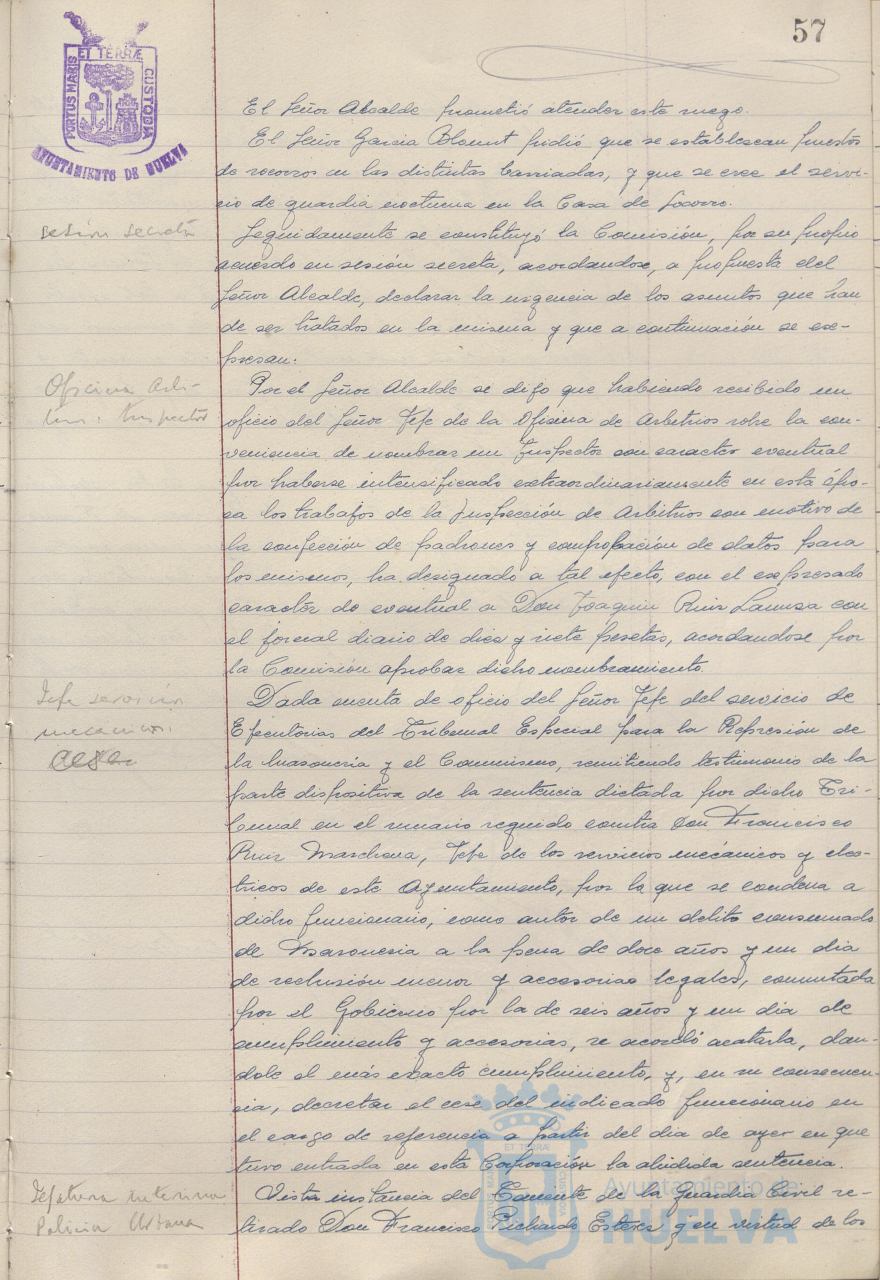 57
PORTUS MARIS ET TERRÆ CUSTODIA
AYUNTAMIENTO DE HUELVA
El Señor Alcalde prometió atender este ruego.
El Señor Garcia Blount pidió que se establezcan puestos
de socorros en las distintas barriadas, y que se cree el servi-
cio de guardia nocturna en la Casa de Socorro.
Sesión secreta
Seguidamente se constituyó la Comisión, por su propio
acuerdo en sesión secreta, acordandose, a propuesta del
Señor Alcalde, declarar la urgencia de los asuntos que han
de ser tratados en la misma y que a continuación se ex-
presan:
Oficina Arbi-
trios. Inspector
Por el Señor Alcalde se dijo que habiendo recibido un
oficio del Señor Jefe de la Oficina de Arbitrios sobre la con-
veniencia de nombrar un Inspector con caracter eventual
por haberse intensificado extraordinariamente en esta épo-
ca los trabajos de la Inspección de Arbitrios con motivo de
la confección de padrones y comprobación de datos para
los mismos, ha designado a tal efecto, con el expresado
caractér de eventual a Don Joaquin Ruiz Lamusa con
el jornal diario de diez y siete pesetas, acordandose por
la Comisión aprobar dicho nombramiento.
Jefe servicios
mecanicos.
Cese
Dada cuenta de oficio del Señor Jefe del servicio de
Ejecutorias del Tribunal Especial para la Represión de
la Masonería y el Comunismo, remitiendo testimonio de la
parte dispositiva de la sentencia dictada por dicho Tri-
bunal en el sumario seguido contra Don Francisco
Ruiz Marchena, Jefe de los servicios mecánicos y eléc-
tricos de este Ayuntamiento, por la que se condena a
dicho funcionario, como autor de un delito consumado
de Masonesia a la pena de doce años y un dia
de reclusión menor y accesorias legales, conmutada
por el Gobierno por la de seis años y un dia de
cumplimiento y accesorias, se acordó acatarla, dan-
dole el más exacto cumplimiento, y, en su consecuen-
cia, decretar el cese del indicado funcionario en
el cargo de referencia a partir del dia de ayer en que
tuvo entrada en esta Corporación la aludida sentencia.
Jefatura interina
Policia Urbana
Vista instancia del Teniente de la Guardia Civil re-
tirado Don Francisco Pichardo Esteves y en virtud de los
Ayuntamiento de
HUELVA